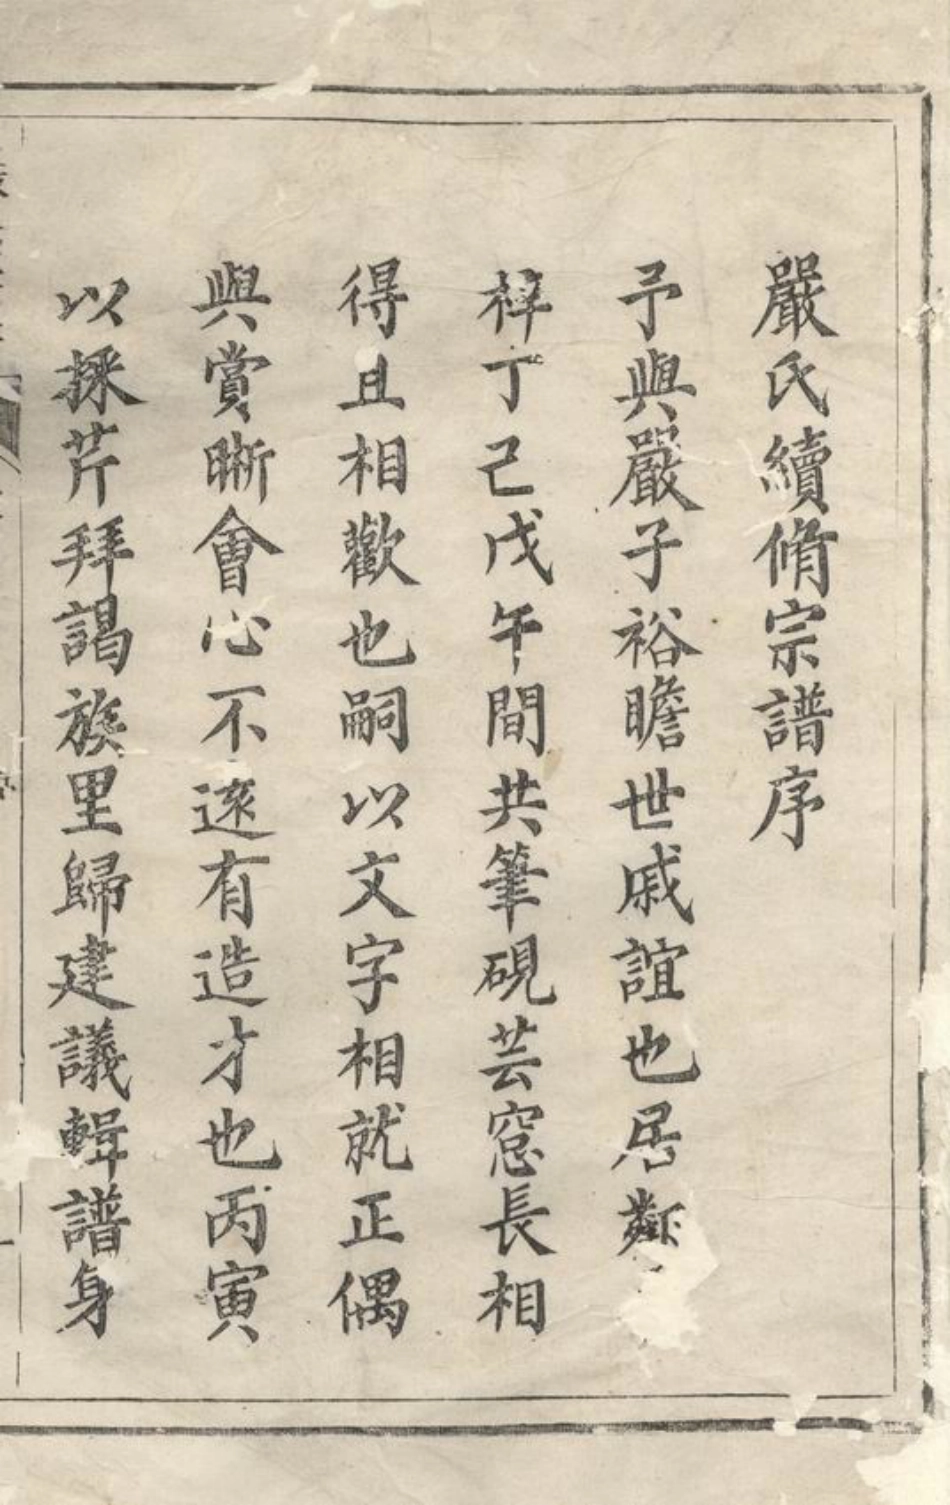 嚴氏續脩宗譜序
予與嚴子裕瞻世戚誼也居鄰
梓丁己戊午間共筆硯芸窓長相
得且相歡也嗣以文字相就正偶
與賞晣會心不遠有造才也丙寅
以採芹拜謁族里歸建議輯譜身